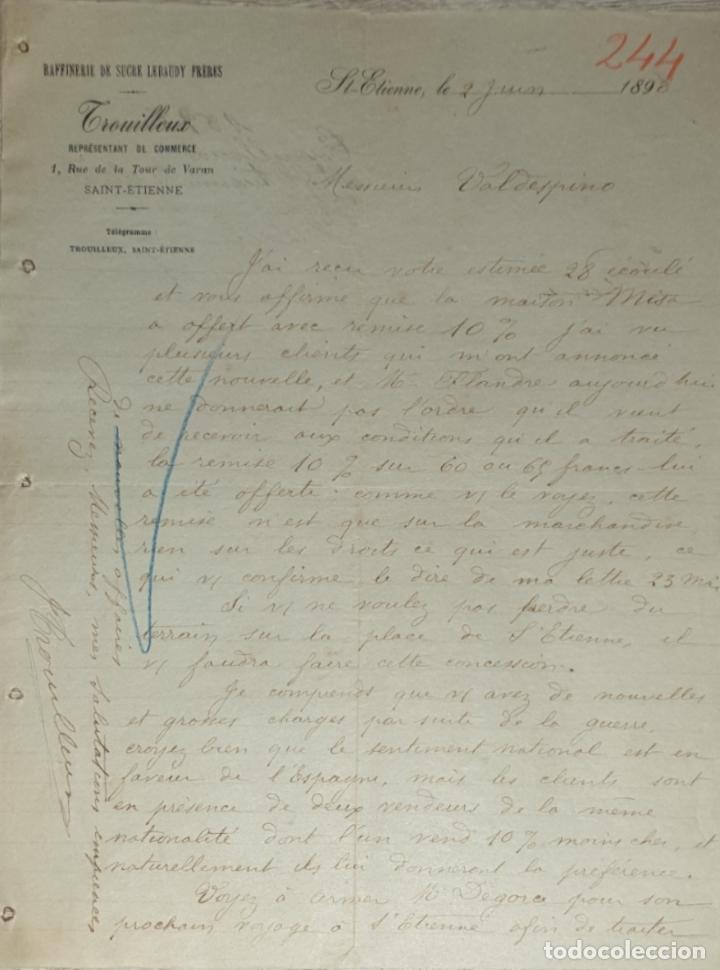 244
RAFFINERIE DE SUCRE LEBAUDY FRÈRES
Trouilleux
REPRÉSENTANT DE COMMERCE
1, Rue de la Tour de Varan
SAINT-ÉTIENNE
Télégramme :
TROUILLEUX, SAINT-ÉTIENNE
St-Etienne, le 2 Juin 1898
Messieurs Valdespino
J'ai reçu votre estimée 28 écoulé
et vous affirme que la maison Misa
a offert avec remise 10 % j'ai vu
plusieurs clients qui m'ont annoncé
cette nouvelle, et M. Flandre aujourd'hui
ne donnerait pas l'ordre qu'il vient
de recevoir aux conditions qu'il a traité,
la remise 10 % sur 60 ou 65 francs lui
a été offerte : comme v/ le voyez, cette
remise n'est que sur la marchandise,
rien sur les droits ce qui est juste, ce
qui v/ confirme le dire de ma lettre 23 Mai
Si v/ ne voulez pas perdre du
terrain sur la place de St Etienne, il
v/ faudra faire cette concession.
Je comprends que v/ avez de nouvelles
et grosses charges par suite de la guerre,
croyez bien que le sentiment national est en
faveur de l'Espagne, mais les clients sont
en présence de deux vendeurs de la même
nationalité dont l'un vend 10 % moins cher, et
naturellement ils lui donneront la préférence.
Voyez à M. Degorce pour son
prochain voyage à St Etienne afin de traiter
de nouvelles affaires
Recevez, Messieurs, mes salutations empressées
J Trouilleux
todocoleccion